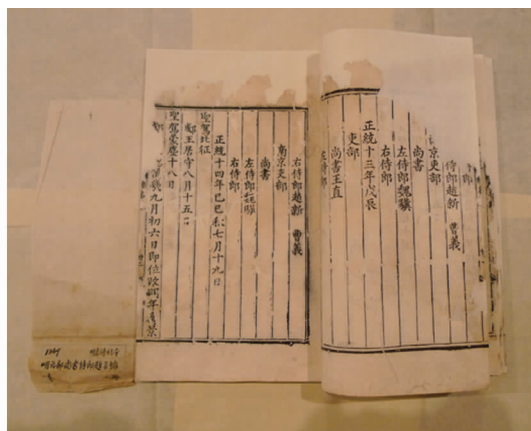 部
侍郎趙新 曹義
京吏部
尚書
左侍郎魏驥
右侍郎
正統十三年戊辰
吏部
尚書王直
左侍郎
右侍郎趙新 曹義
南京吏部
尚書
左侍郎魏驥
右侍郎
正統十四年己巳秋七月十九日
聖駕北征
郕王居守八月十五日
聖駕蒙塵十八日
漢九月初六日即位改明年為景